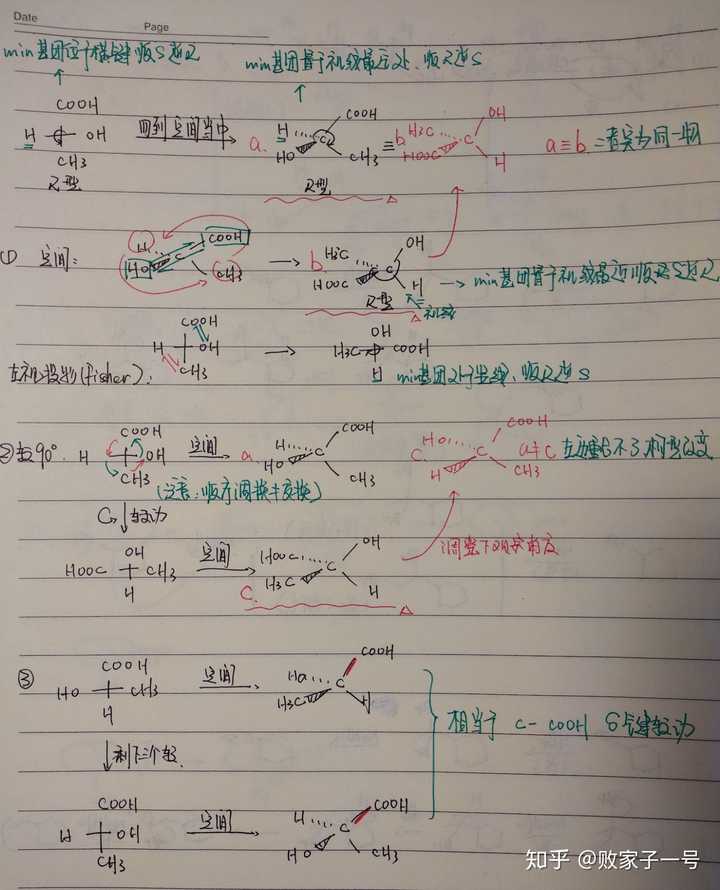 Date
Page
min基团位于横键 顺S逆R
min基团置于视线最远处,顺R逆S
COOH
H OH
CH3
R型
回到空间当中
a. H COOH
HO C CH3
R型
≡
b. H3C OH
HOOC C H
a≡b 二者实为同一物
① 空间:
H COOH
HO C CH3
b. H3C OH
HOOC C H
R型
视线
min基团置于视线最近 顺S逆R
COOH
H OH
CH3
投影(fisher):
OH
H3C COOH
H
min基团处于竖线、顺R逆S
② 转90°.
COOH
H OH
CH3
空间
a. H COOH
HO C CH3
C. HO COOH
H C CH3
a≠c
(注意:顺序调换≠交换)
转动
OH
HOOC CH3
H
空间
HOOC OH
H3C C H
C.
调整下观察角度
③
COOH
HO CH3
H
空间
HO COOH
H3C C H
剩下三个转
COOH
H OH
CH3
空间
H COOH
HO C CH3
相当于 C-COOH δ键转动
知乎 @败家子一号